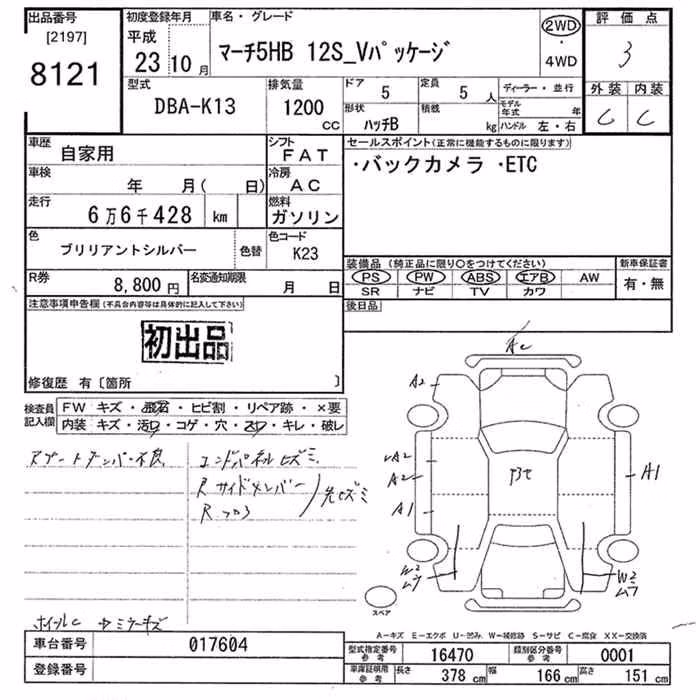 出品番号
[2197]
8121
初度登録年月
平成
23 10 月
車名・グレード
マーチ5HB 12S_Vパッケージ
2WD
・
4WD
評価点
3
外装 内装
C C
型式
DBA-K13
排気量
1200
CC
ドア
5
定員
5 人
形状
ハッチB
積載
kg
ディーラー・並行
モデル年式 年
ハンドル 左・右
車歴
自家用
シフト
FAT
車検
年 月( 日)
冷房
AC
走行
6万6千428 km
燃料
ガソリン
色
ブリリアントシルバー
色替
色コード
K23
R券
8,800円
名変通知期限
月 日
セールスポイント(正常に機能するものに限ります)
・バックカメラ ・ETC
装備品 (純正品に限り○をつけてください)
PS PW ABS エアB AW
SR ナビ TV カワ
新車保証書
有・無
後日品
注意事項申告欄(不具合内容等は具体的に記入して下さい)
初出品
修復歴 有〔箇所 〕
検査員
記入欄
FW キズ・飛石・ヒビ割・リペア跡・×要
内装 キズ・汚レ・コゲ・穴・スレ・キレ・破レ
エンドパネルヒズミ
R サイドメンバー
R フロア
先ヒズミ
A2
A2
A2
A1
A1
W2
W2
スペア
A-キズ E-エクボ U-凹み W-補修跡 S-サビ C-腐食 XX-交換済
車台番号
017604
登録番号
型式指定番号
参考
16470
類別区分番号
参考
0001
車庫証明用
参考
長さ
378 cm
幅
166 cm
高さ
151 cm